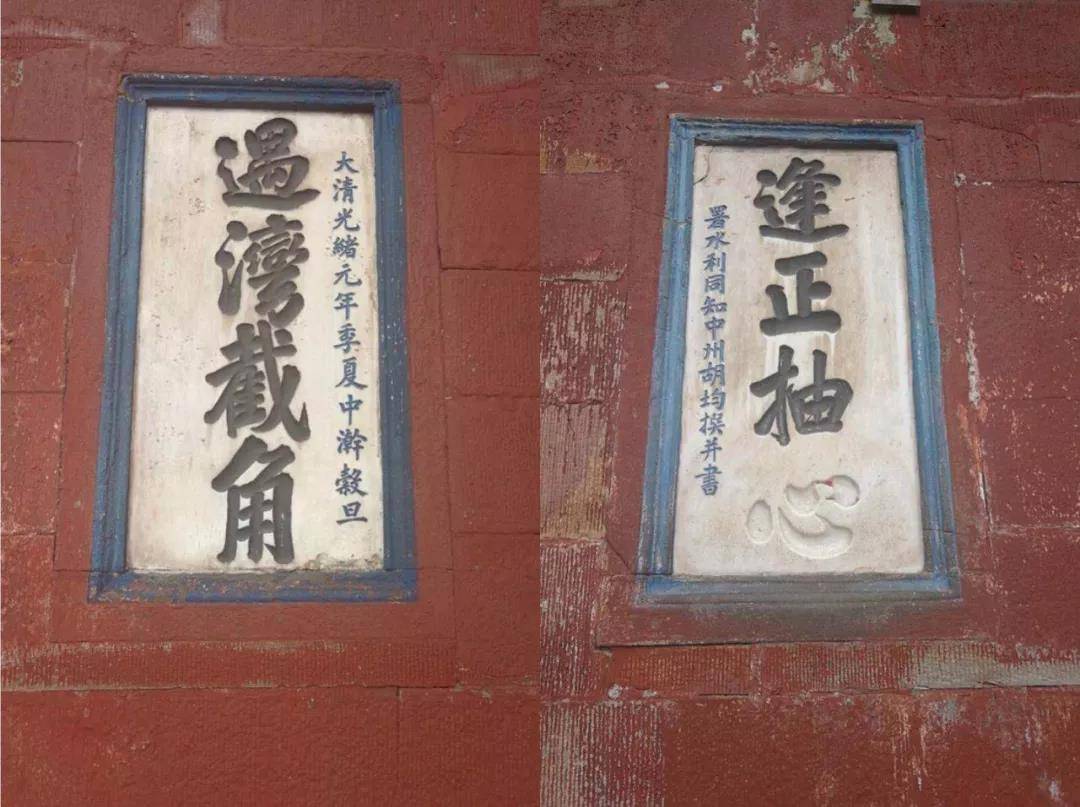 大清光緒元年季夏中澣穀旦
遇灣截角
逢正抽心
署水利同知中州胡均撰并書